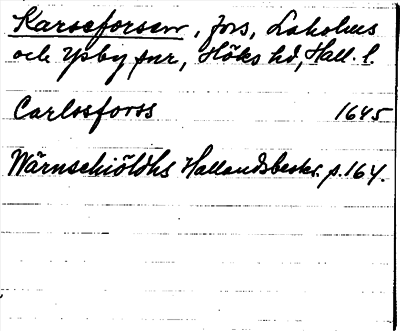 Karseforsen, fors, Laholms
och Ysby snr, Höks hd, Hall. l.
Carlssforss 1645
Wärnschiöldhs Hallandsbeskr. p. 164.